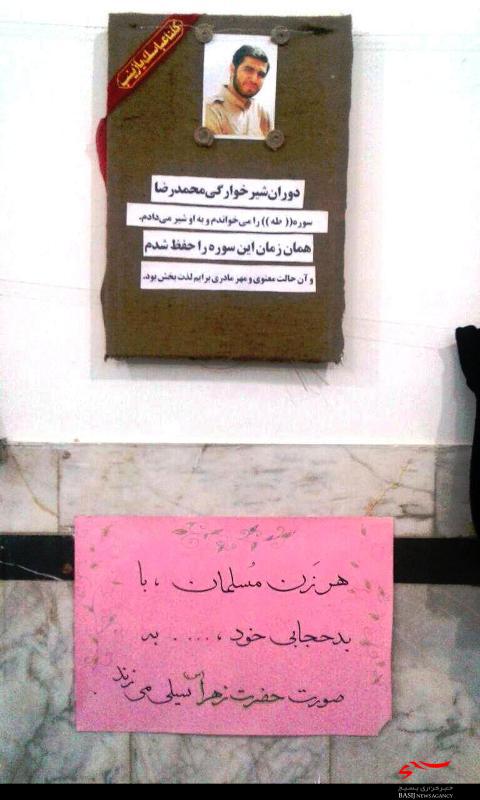 کلنا عباسک یا زینب
دوران شیرخوارگی محمدرضا
سوره(( طه )) را می‌خواندم و به او شیر می‌دادم.
همان زمان این سوره را حفظ شدم
و آن حالت معنوی و مهر مادری برایم لذت بخش بود.
هر زَن مُسلمان ، با
بدحجابی خود ، .... به
صورت حضرت زهراس سیلی می زند.
بسیج
خبرگزاری بسیج
BASIJ NEWS AGANCY